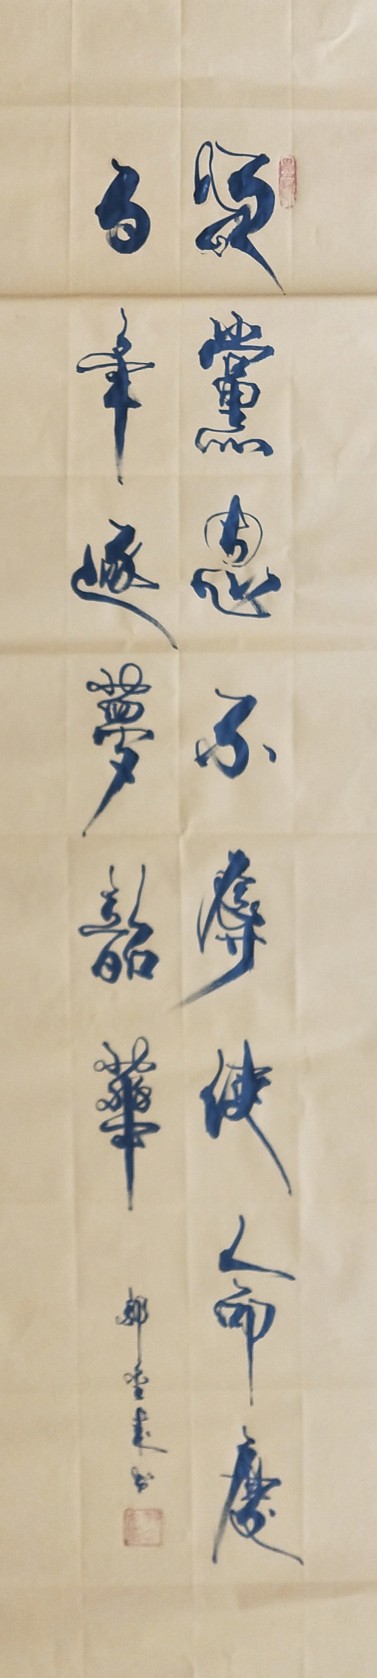 黨恩不辱使命慶
百年逐夢韶華